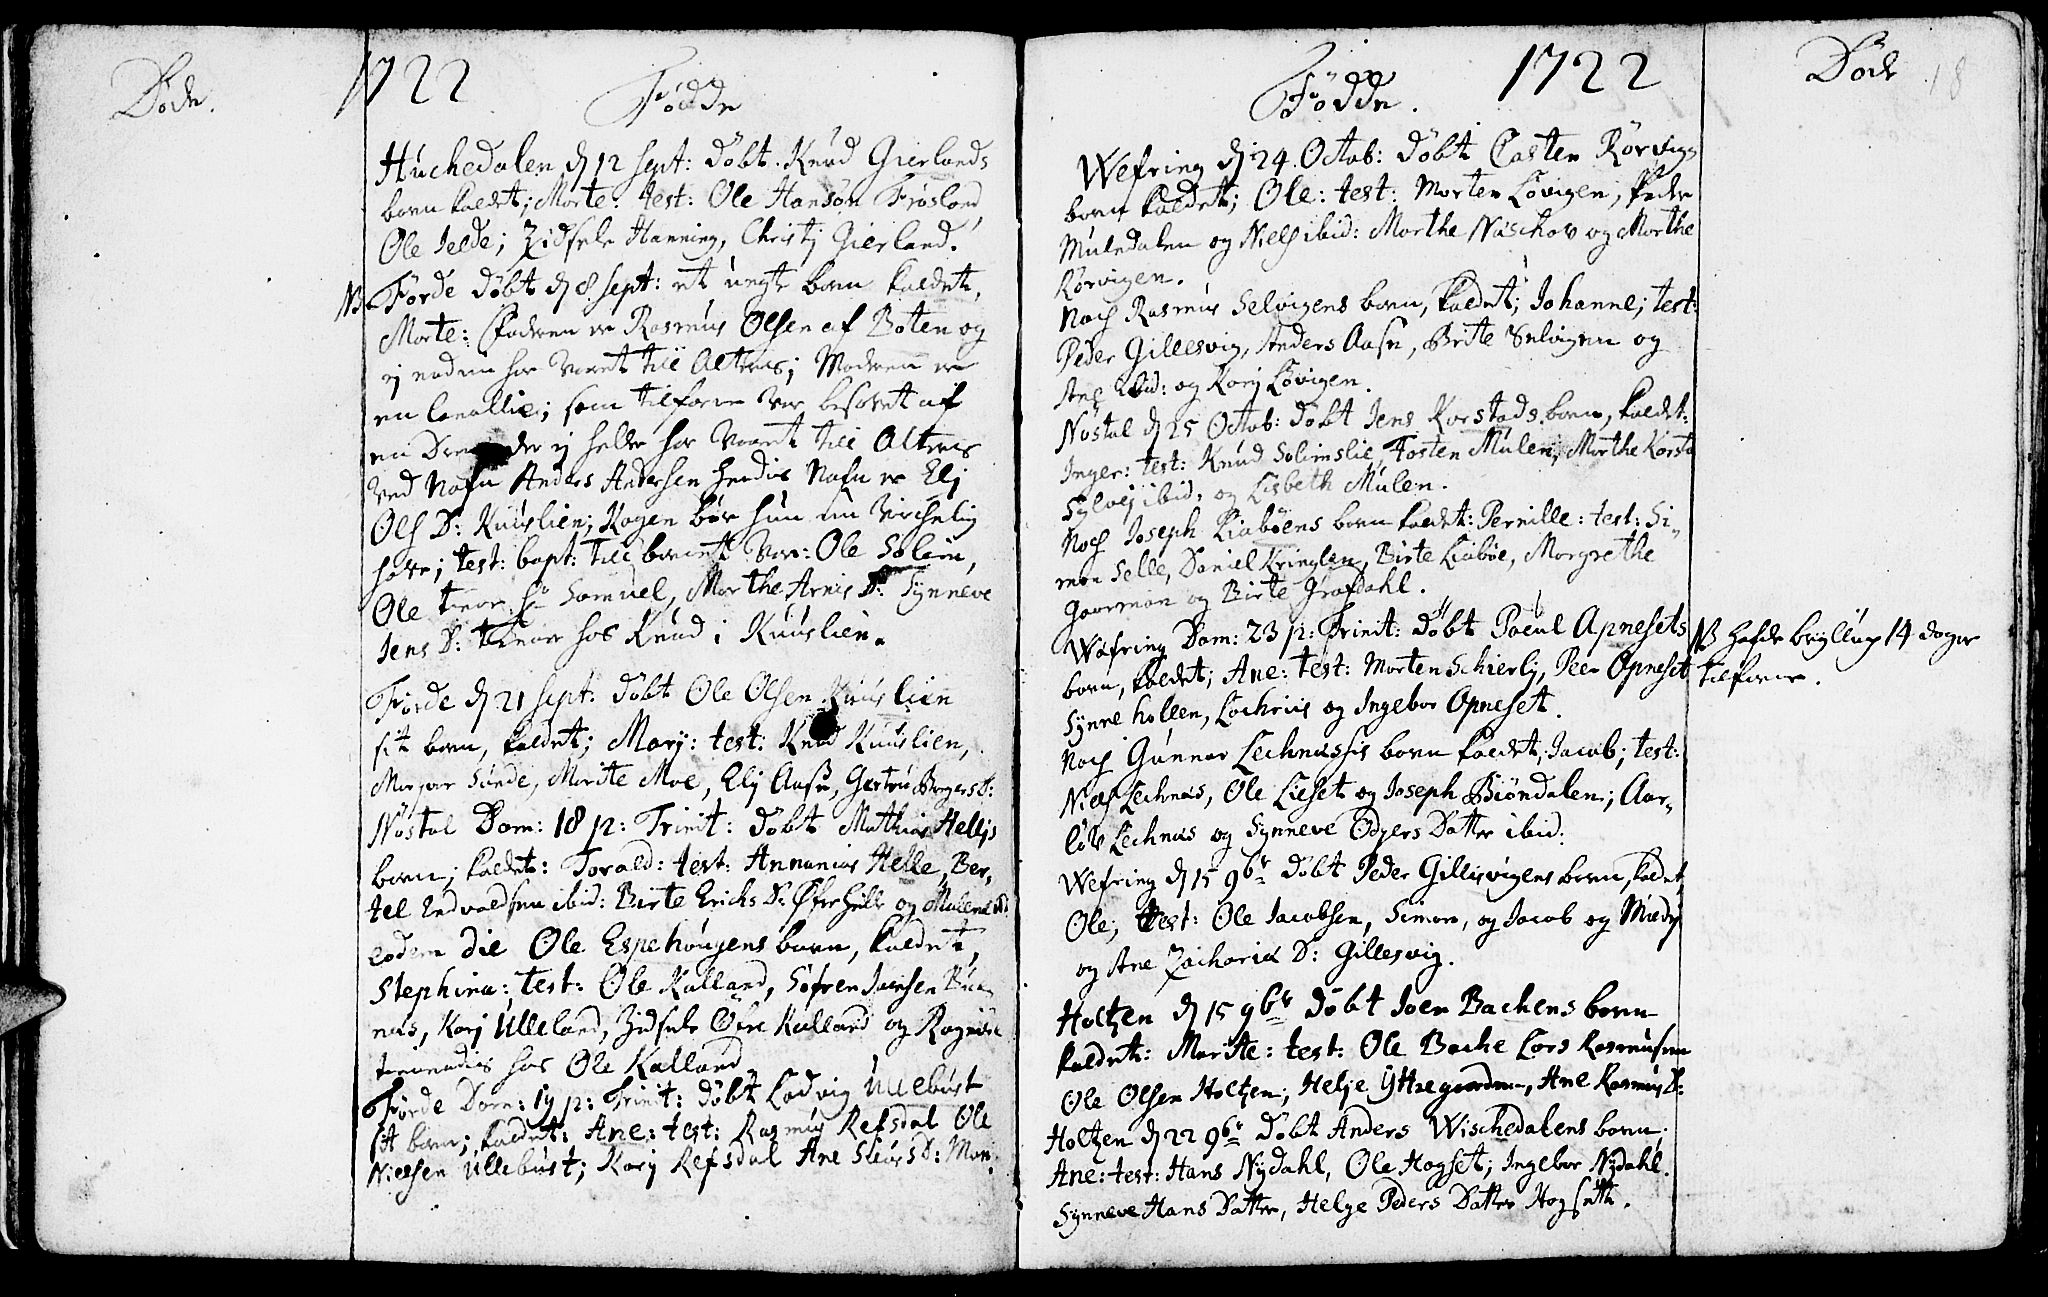 Døde.
1722
Fødde
Huchedalen d 12 Sept: døbt Knud Gierlands
barn kaldet; Marte: test: Ole Hansøn Frøsland
Ole Ielde; Zidsele Hanning, Christj Gierland.
NB Førde døbt d 8 Sept: et uegte barn kaldet,
Marte: Faderen er Rasmus Olsen af Boten og
ej enden har været till Alters; Moderen er
en Canallie; som tilforn var besovet af
en der ej heller har været till Alters
ved Nafn Anders Andersen hendis Nafn er Elj
Ols D: Kuuslien; Kagen bør hun nu Virchelig
have; test: bapt: till barnet var: Ole Solem,
Ole tiener Samuel, Marthe Arnis D: Synneve
Iens D: tiener hos Knud i Kuuslien.
Førde d 21 Sept: døbt Ole Olsen Kuuslien
sit barn, kaldet; Marj: test: Knud Kuuslien,
Sunde, Marite Moe, Elj Aase, Gertru D:
Nøstal Dom: 18 p: Trinit: døbt Mathias Hellis
barn, kaldet: Torald: test: Annanias Helle, Ber,
tel ibid: Birte Erichs D: Øfre Helle og Malene ibid:
eodem die Ole Espehougens barn, kaldet,
Stephina: test: Ole Kalland, Søfren Iensen
næs, Karj Ulleland, Zidsele Øfre Kalland og
tienendis hos Ole Kalland
Førde Dom: 19 p: Trinit: døbt Ladvig Ullebust
sit barn; kaldet: Ane: test: Rasmus Refsdal Ole
Nielsen Ullebust; Karj Refsdal Ane D:
Fødde.
1722
Døde
18
Wefring d 24 Octob: døbt Casten Rørvigs
barn kaldet; Ole: test: Morten Løvigen, Peder
Muledalen og Niels ibid: Marthe Naschov og Marthe
Rørvigen.
Noch Rasmus Selvigens barn, kaldet; Iohanne; test:
Peder Gillesvig, Anders Aase, Brite Selvigen og
Ane ibid: og Karj Løvigen.
Nøstal d 25 Octob: døbt Iens Korstads barn, kaldet:
Inger: test: Knud Solimslie, Tosten Mulen, Marthe Korsta
Sylvej ibid, og Lisbeth Mulen.
Noch Ioseph Liabøens barn kaldet: Pernille: test: Si,
mon Selle, Daniel Kringlen, Birte Liabøe, Margrethe
og Birte Grafdahl.
Wefring Dom: 23 p: Trinit: døbt Poeul Apnesets
barn, kaldet; Ane: test: Morten Schierlj, Peer Opneset
Synne hollen, og Ingebor Opneset.
NB hafde bryllup 14 dager
tilforn.
Noch Gunnar Lechnæssis barn kaldet; Iacob; test:
Niels Lechnæs, Ole Lieset og Ioseph Biøndalen; Aar,
løv Lechnæs og Synneve Odgers Datter ibid:
Wefring d 15 9br døbt Peder Gillisvigens barn, kaldet,
Ole; test: Ole Iacobsen, Simon, og Iacob og
og Ane Zacharia D: Gillesvig.
Holtzen d 15 9br døbt Ioen Bachens barn
kaldet: Marite: test: Ole Bache Lars Rasmusen
Ole Olsen Holtzen; Helje Yttregaarden, Ane Rasmus D:
Holtzen d 22 9br døbt Anders Wischedalens barn
Ane: test: Hans Nydahl, Ole Hogset; Ingebor Nydahl.
Synneve Hans Datter, Helge Peders Datter Hogsett.